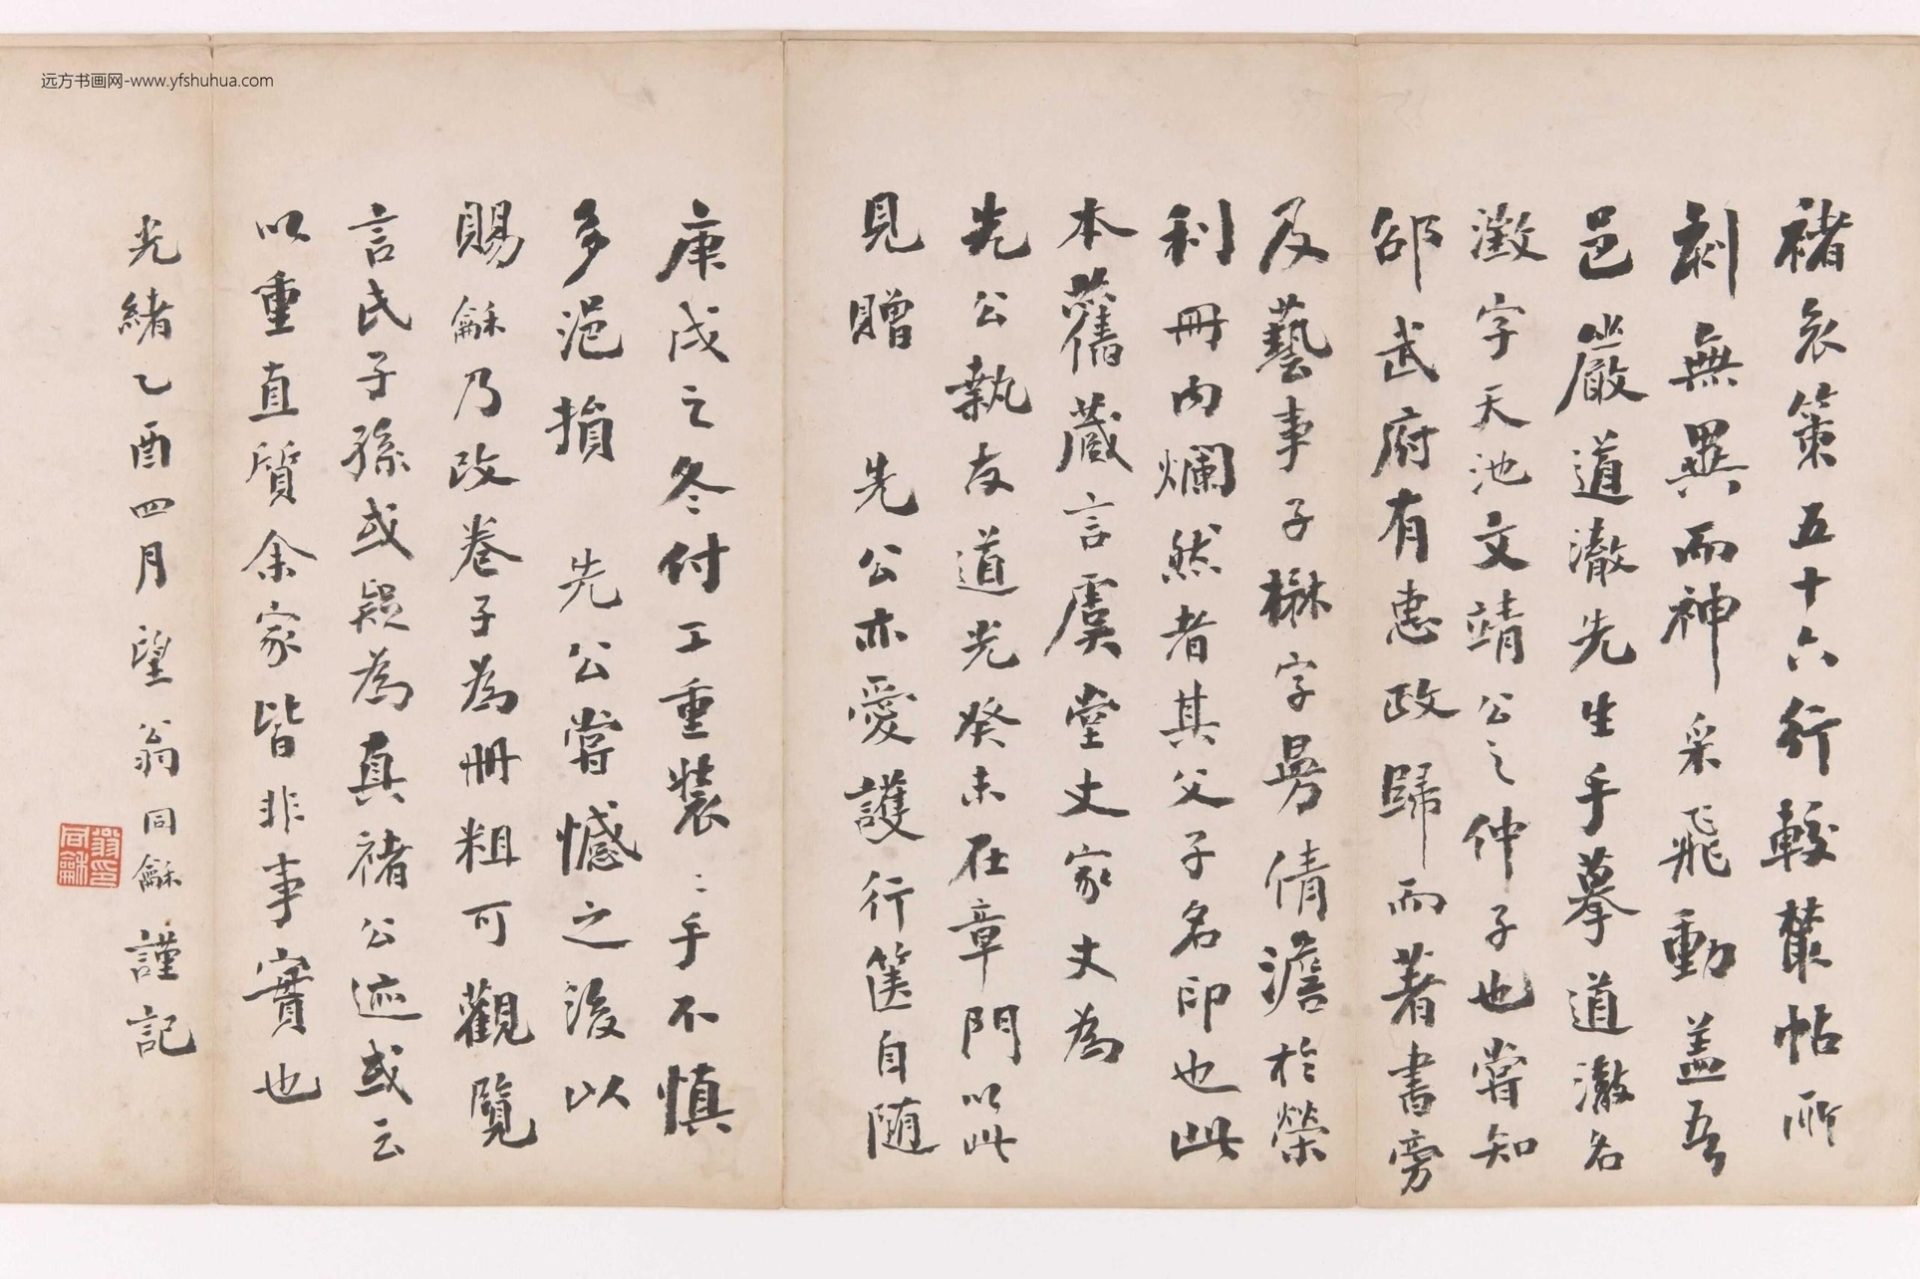 远方书画网-www.yfshuhua.com
褚哀策五十六行較叢帖所
刻無異而神采飛動蓋吾
邑嚴道澈先生手摹道澈名
澂字天池文靖公之仲子也嘗知
邵武府有惠政歸而著書旁
及藝事子楙字曼倩澹於榮
利冊內爛然者其父子名印也此
本舊藏言虞堂丈家丈為
先公執友道光癸未在章門以此
見贈 先公亦愛護行篋自隨
庚戌之冬付工重裝二手不慎
多浥損 先公嘗憾之後以
賜龢乃改卷子為冊粗可觀覽
言氏子孫或疑為真褚公迹或云
以重直質余家皆非事實也
光緒乙酉四月望翁同龢謹記
翁印
同龢